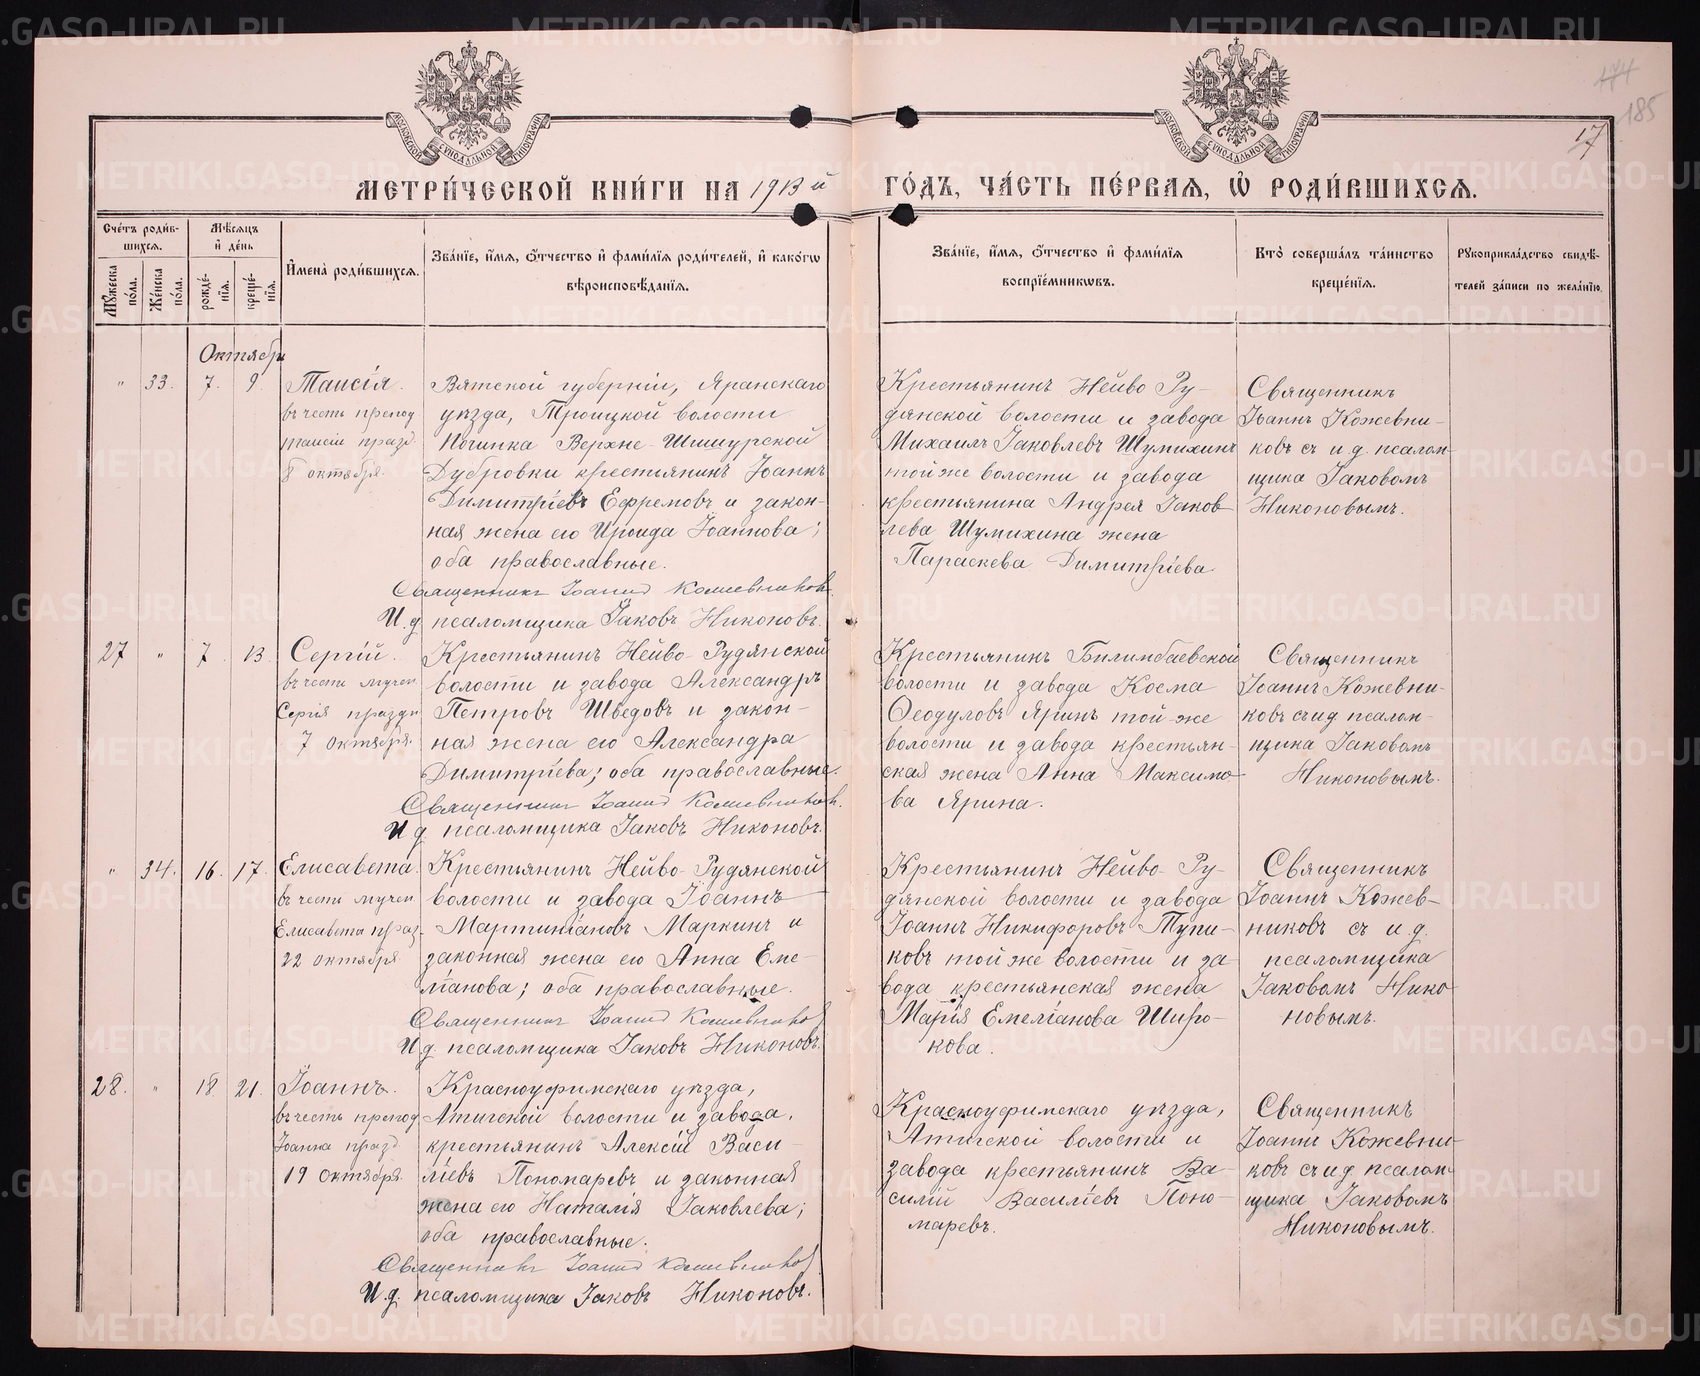 174
185
17
МОСКОВСКОЙ СѴНОДАЛЬНОЙ ТИПОГРАФІИ
МОСКОВСКОЙ СѴНОДАЛЬНОЙ ТИПОГРАФІИ
МЕТРИ́ЧЕСКОЙ КНИ́ГИ НА 1913 й ГО́ДЪ, ЧА́СТЬ ПЕ́РВАѦ, Ѡ҆ РОДИ́ВШИХСѦ.
Сче́тъ роди́в-
шихся.
Мꙋжеска по́ла.
Же́нска по́ла.
Мѣ́сяцъ
и҆ де́нь
рожде́-
нїя.
креще́-
нїя.
И҆мена̀ роди́вшихся.
Зва́нїе, и҆́мя, ѻ҆́тчество и҆ фами́лїя роди́телей, и҆ како́гѡ
вѣроисповѣ́данїя.
Зва́нїе, и҆́мя, ѻ҆́тчество и҆ фами́лїя
воспрїе́мникѡвъ.
Кто̀ соверша́лъ та́инство
креще́нїя.
Рꙋкоприкла́дство свидѣ́-
телей за́писи по жела́нїю.
Октябрь
" 33. 7. 9. Таисія.
въ честь препод.
Таисіи празд.
8 октября.
Вятской губерніи, Яранскаго
уѣзда, Троицкой волости
Починка Верхне-Шишурской
Дубровки крестьянинъ Іоаннъ
Димитріевъ Ефремовъ и закон-
ная жена его Ироида Іоаннова;
оба православные.
Священникъ Іоаннъ Кожевниковъ
И. д. псаломщика Іаковъ Никоновъ.
Крестьянинъ Нейво-Ру-
дянской волости и завода
Михаилъ Іаковлевъ Шумихинъ
той же волости и завода
крестьянина Андрея Іаков
лева Шумихина жена
Параскева Димитріева.
Священникъ
Іоаннъ Кожевни-
ковъ съ и. д. псалом-
щика Іаковомъ
Никоновымъ.
27 " 7. 13. Сергій.
въ честь мучен.
Сергія праздн.
7 октября.
Крестьянинъ Нейво-Рудянской
волости и завода Александръ
Петровъ Шведовъ и закон-
ная жена его Александра
Димитріева; оба православные.
Священникъ Іоаннъ Кожевниковъ.
И. д. псаломщика Іаковъ Никоновъ.
Крестьянинъ Билимбаевской
волости и завода Косма
Ѳеодуловъ Яринъ той-же
волости и завода крестьян-
ская жена Анна Максимо-
ва Ярина.
Священникъ
Іоаннъ Кожевни-
ковъ съ и. д. псалом-
щика Іаковомъ
Никоновымъ.
" 34. 16. 17. Елисавета.
въ честь мучен.
Елисаветы праз.
22 октября.
Крестьянинъ Нейво-Рудянской
волости и завода Іоаннъ
Мартиніановъ Маркинъ и
законная жена его Анна Еме-
ліанова; оба православные.
Священникъ Іоаннъ Кожевниковъ
И. д. псаломщика Іаковъ Никоновъ.
Крестьянинъ Нейво-Ру-
дянской волости и завода
Іоаннъ Никифоровъ Тупи-
ковъ той же волости и за
вода крестьянская жена
Марія Емеліанова Широ-
кова.
Священникъ
Іоаннъ Кожев-
никовъ съ и. д.
псаломщика
Іаковомъ Нико
новымъ.
28. " 18. 21. Іоаннъ.
въ честь препод.
Іоанна празд.
19 октября.
Красноуфимскаго уѣзда,
Атигской волости и завода,
крестьянинъ Алексій Васи-
ліевъ Пономаревъ и законная
жена его Наталія Іаковлева;
оба православные.
Священникъ Іоаннъ Кожевниковъ
И. д. псаломщика Іаковъ Никоновъ.
Красноуфимскаго уѣзда,
Атигской волости и
завода крестьянинъ Ва-
силій Василіевъ Поно-
маревъ.
Священникъ
Іоаннъ Кожевни-
ковъ съ и. д. псалом-
щика Іаковомъ
Никоновымъ.
METRIKI.GASO-URAL.RU